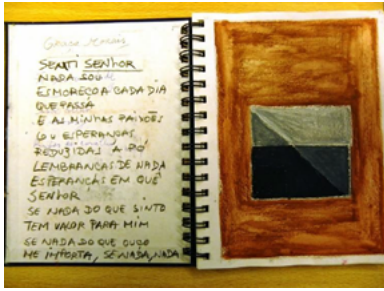 SENTI SENHOR
NADA SOU
ESMOREÇO A CADA DIA
QUE PASSA
E AS MINHAS PAIXÕES
OU ESPERANÇAS
REDUZIDAS A PÓ
LEMBRANÇAS DE NADA
ESPERANÇAS EM QUÊ
SENHOR
SE NADA DO QUE SINTO
TEM VALOR PARA MIM
SE NADA DO QUE OUÇO
ME IMPORTA, SE NADA, NADA